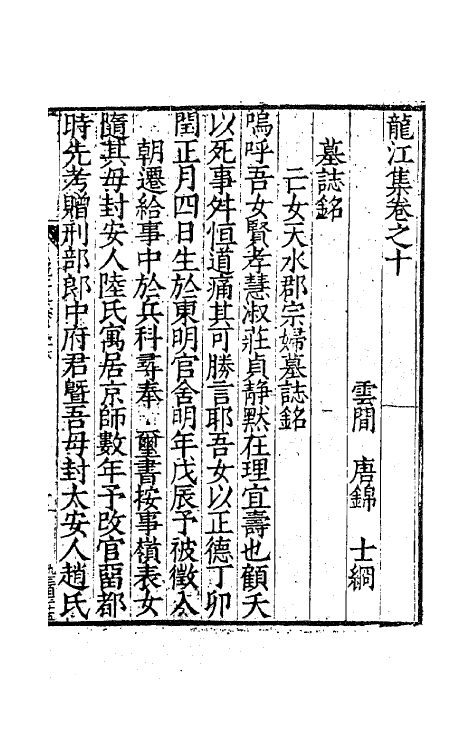 龍江集卷之十
雲間　唐錦　士綱
墓誌銘
亡女天水郡宗婦墓誌銘
嗚呼吾女賢孝慧淑莊貞靜默在理宜壽也顧夭
以死事舛恒道痛其可勝言耶吾女以正德丁卯
閏正月四日生於東明官舍明年戊辰予被徵入
朝遷給事中於兵科尋奉　璽書按事嶺表女
隨其母封安人陸氏寓居京師數年予改官留都
時先考贈刑部郎中府君暨吾母封太安人趙氏